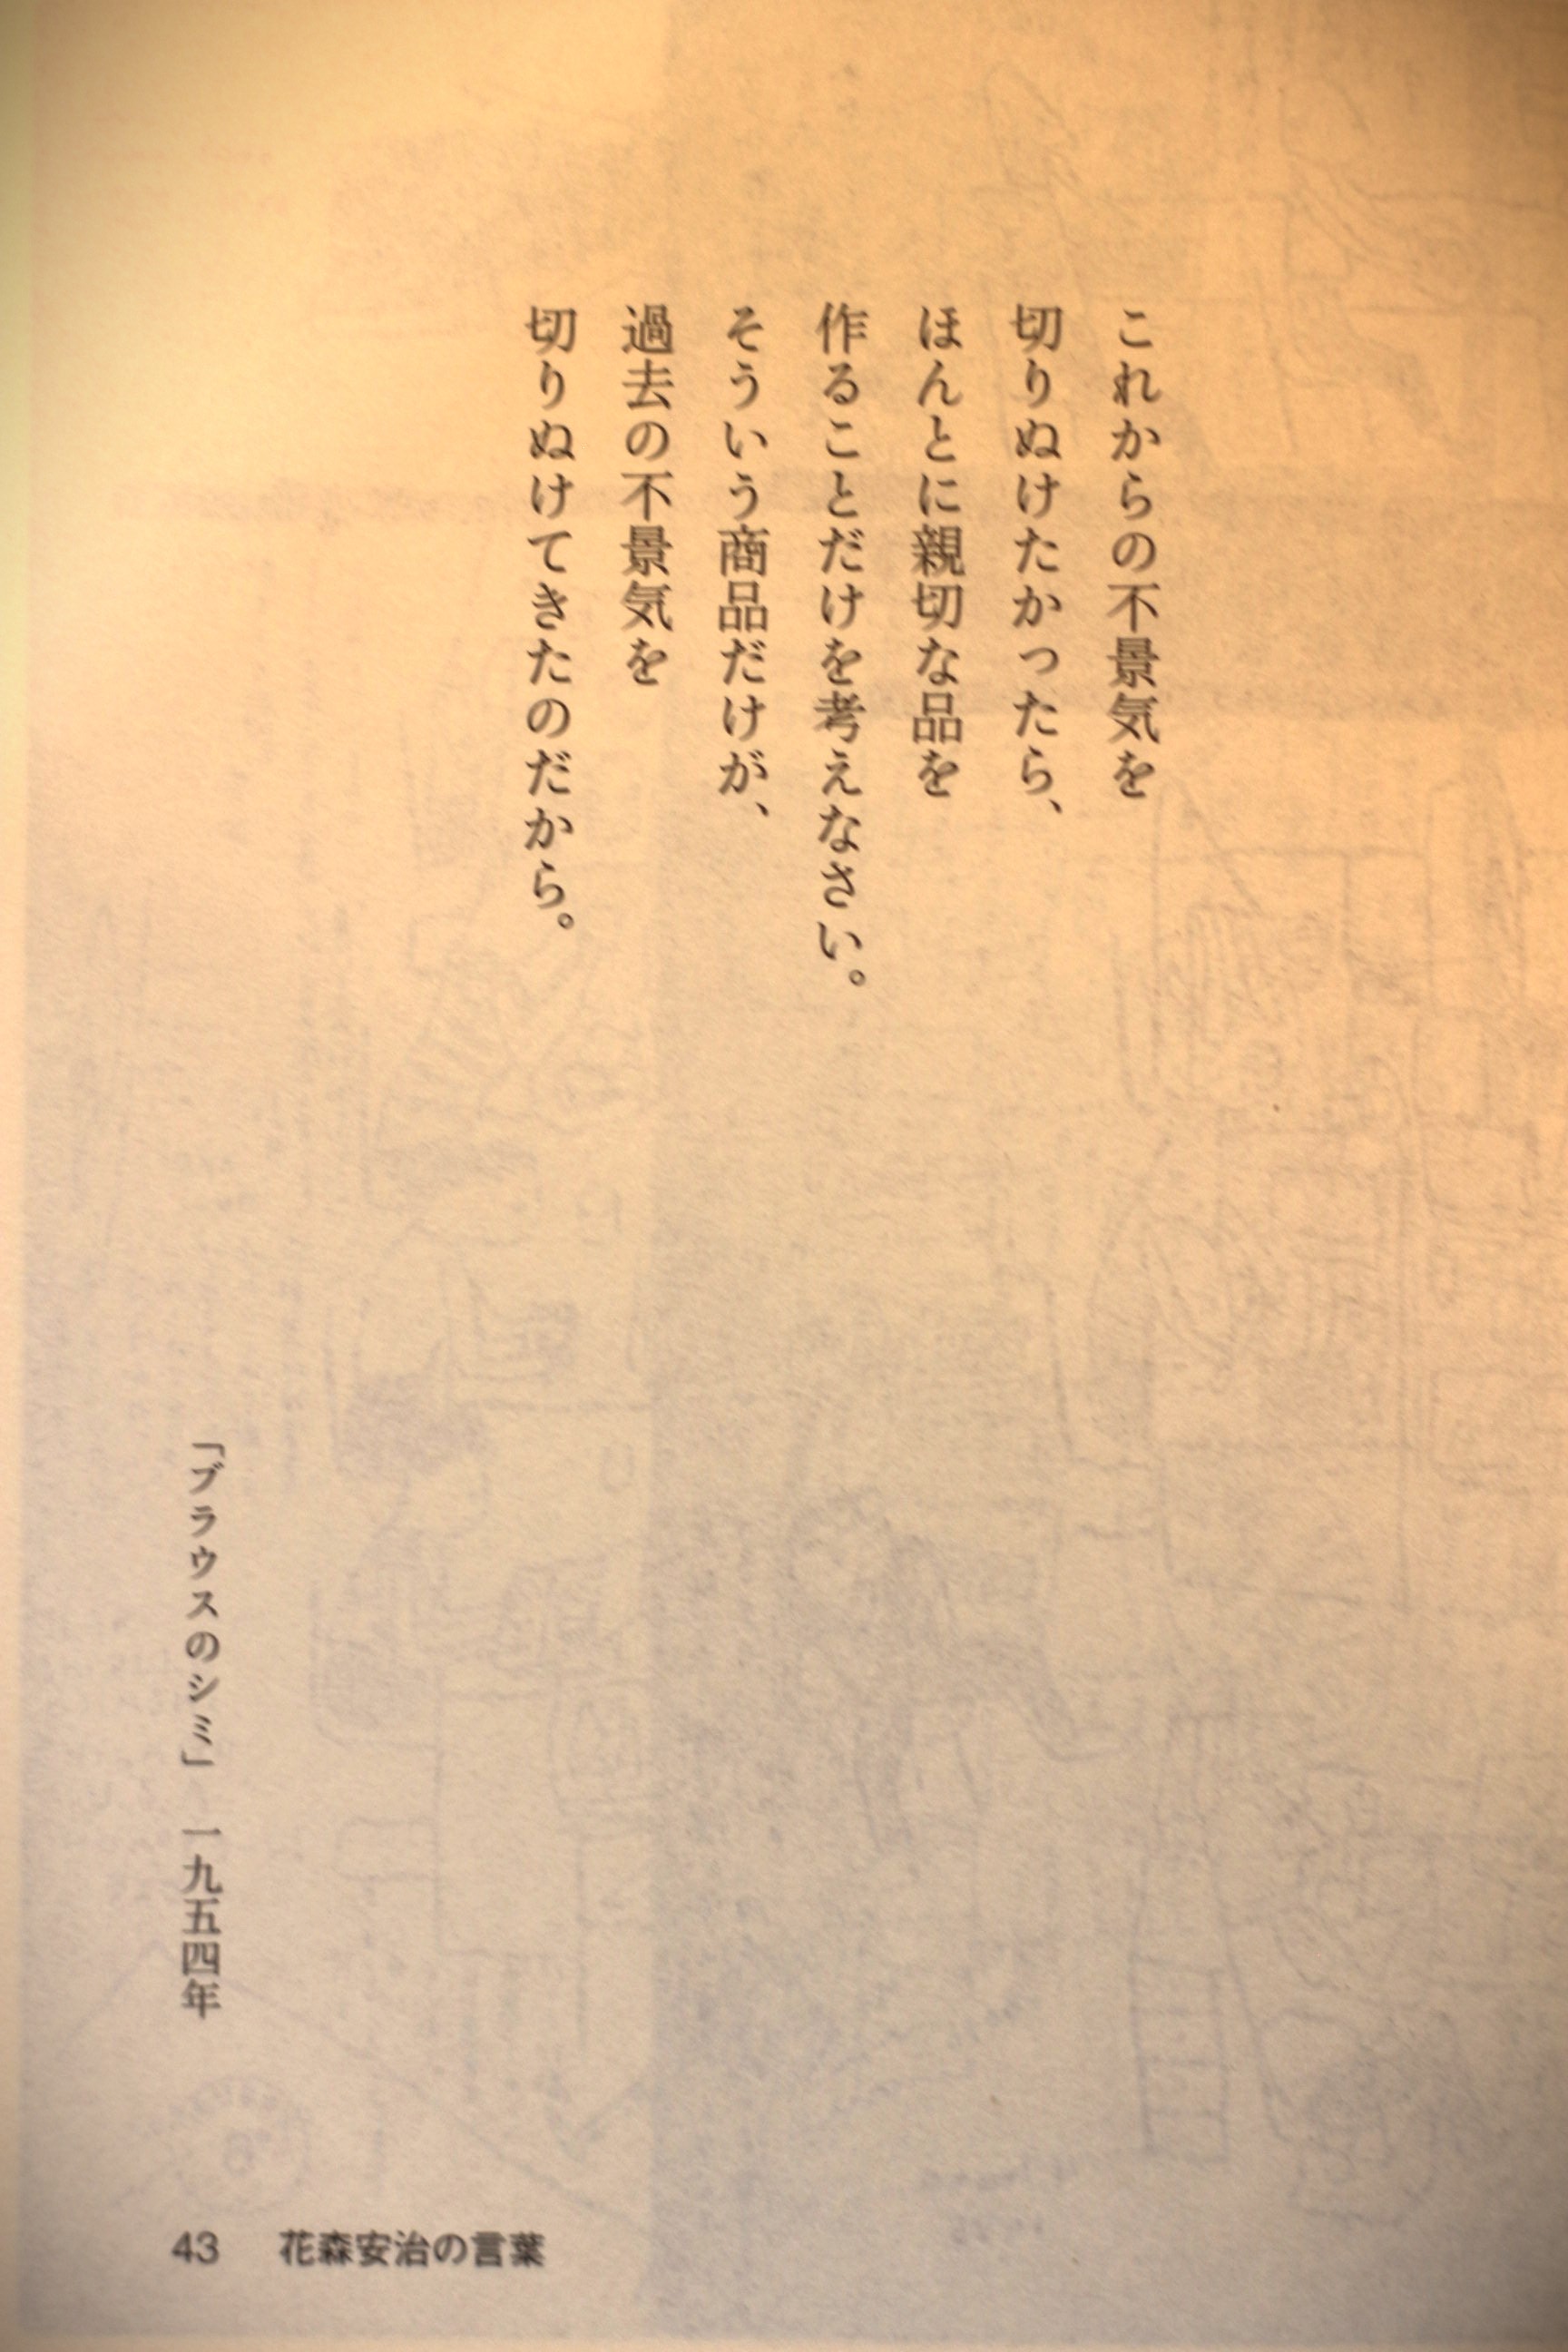 これからの不景気を
切りぬけたかったら、
ほんとに親切な品を
作ることだけを考えなさい。
そういう商品だけが、
過去の不景気を
切りぬけてきたのだから。
「ブラウスのシミ」 一九五四年
43 花森安治の言葉